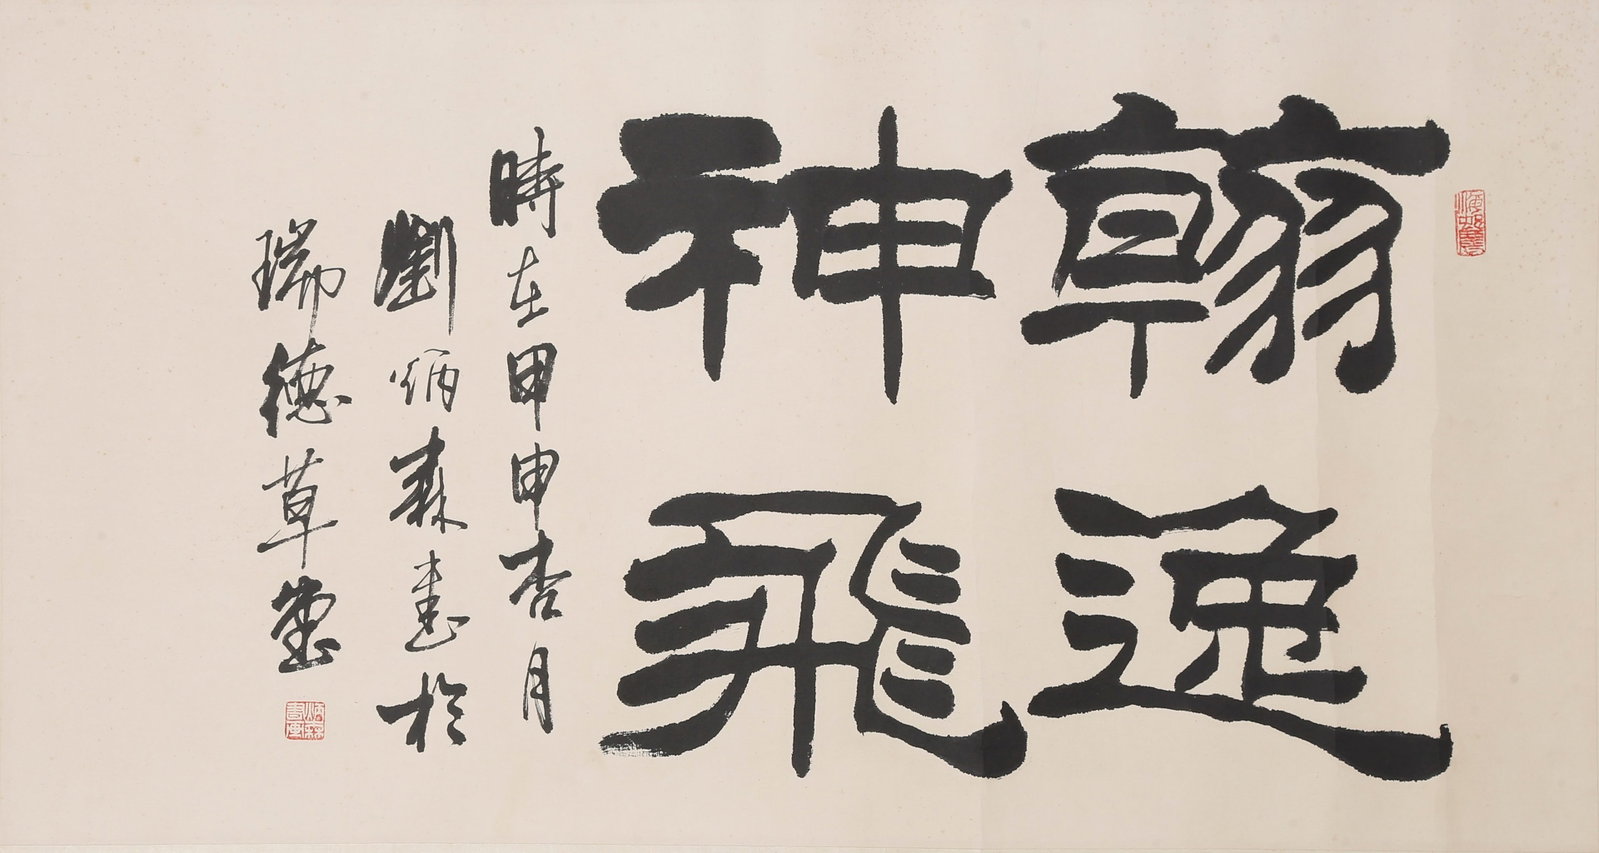 翰逸
神飛
時在甲申杏月
劉炳森書於
瑞德草堂